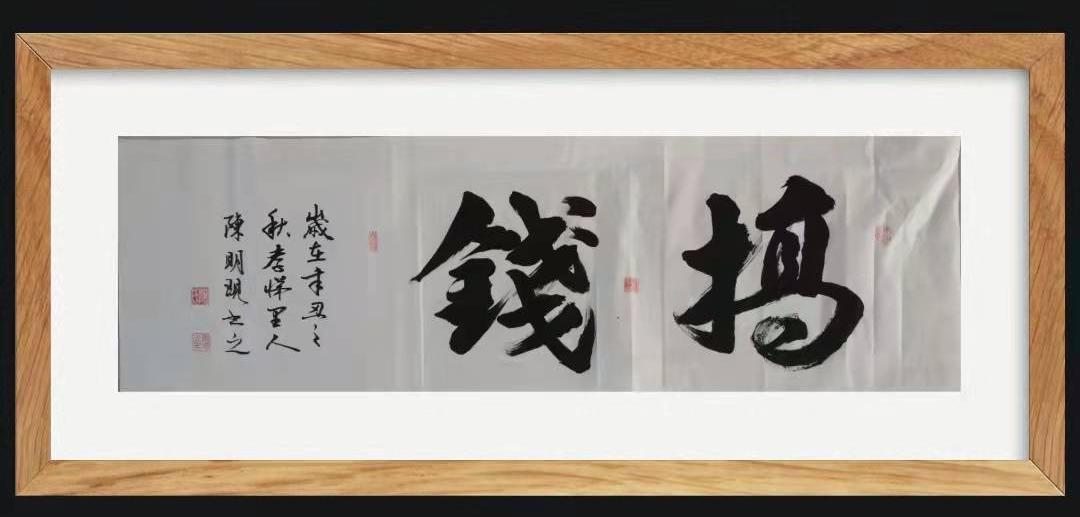 搞錢
歲在辛丑之
秋孝悌里人
陳明觀書之